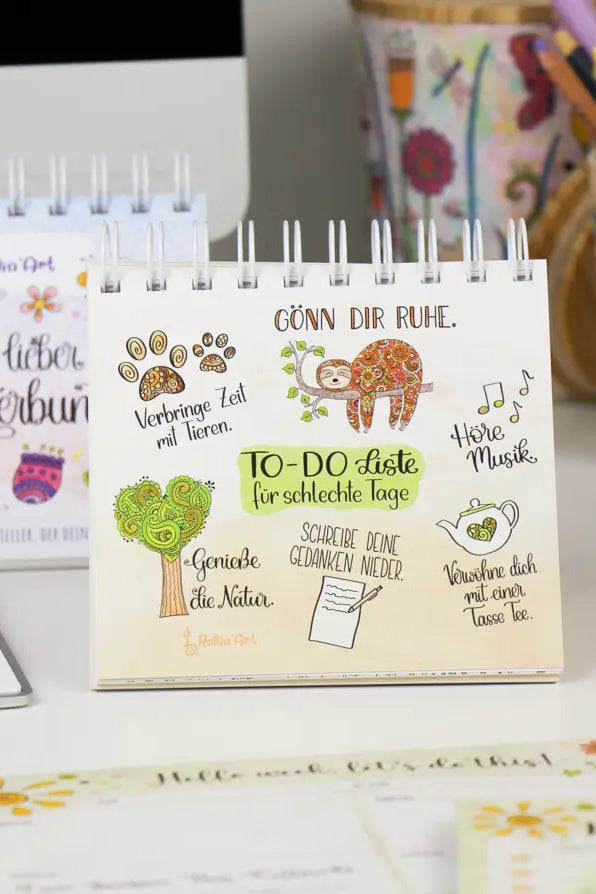 GÖNN DIR RUHE.
Verbringe Zeit
mit Tieren.
Höre
Musik.
TO-DO Liste
für schlechte Tage
Genieße
die Natur.
SCHREIBE DEINE
GEDANKEN NIEDER.
Verwöhne dich
mit einer
Tasse Tee.
RoBin'Art
lieber
DER DEIN
Hello week, let's do this!